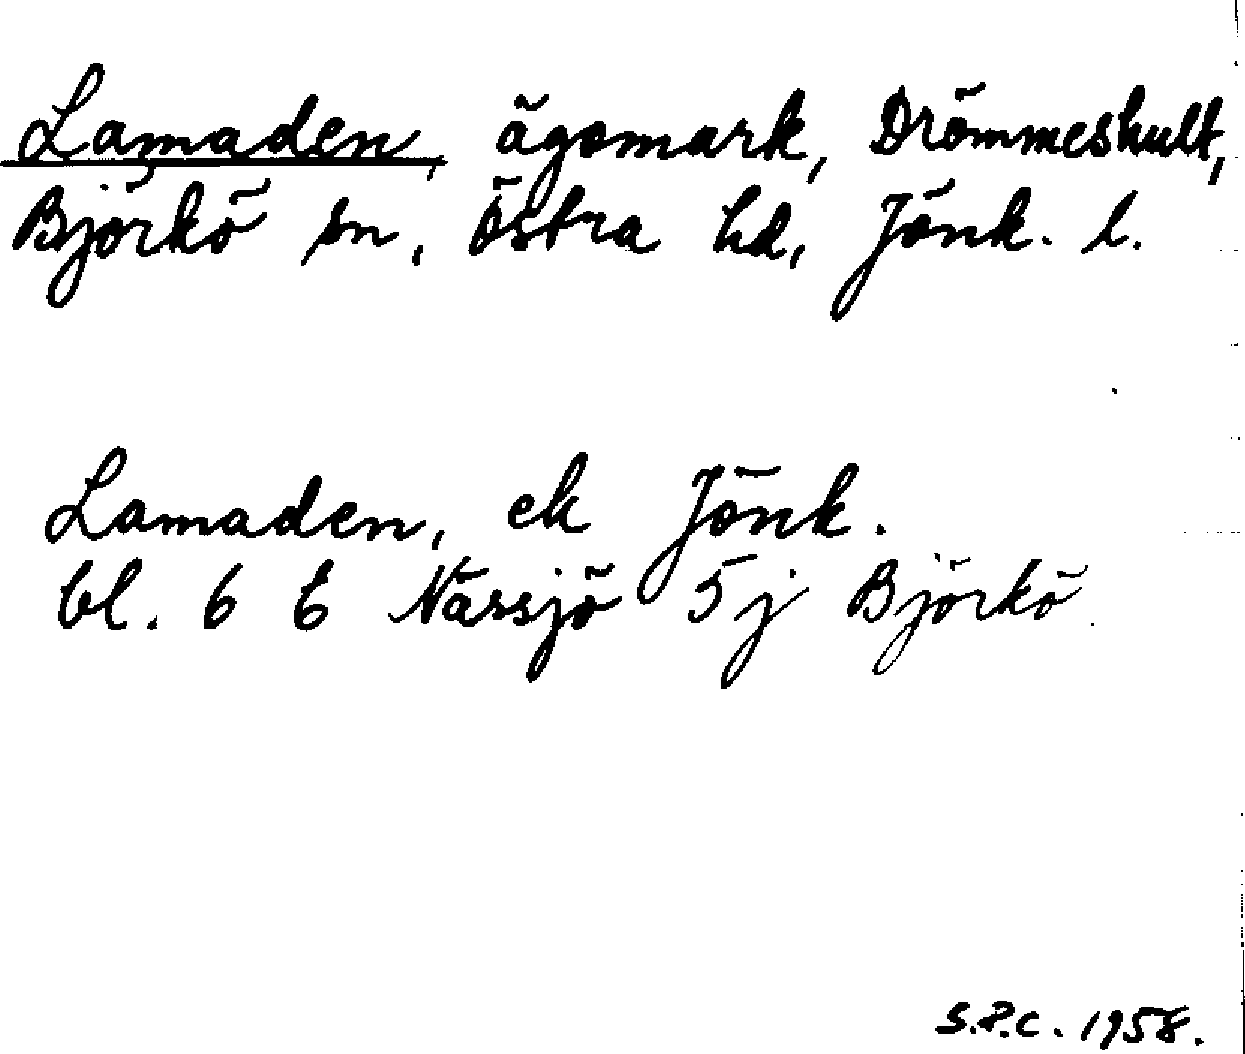 Lamaden, ägomark, Drömmeshult,
Björkö sn, Östra hd, Jönk. l.
Lamaden, ek Jönk.
bl. 6 E Nässjö 5j Björkö.
S.P.C. 1958.